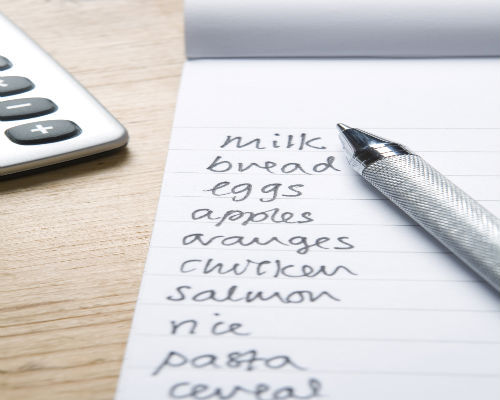 milk
bread
eggs
apples
oranges
chicken
salmon
rice
pasta
cereal
−
+